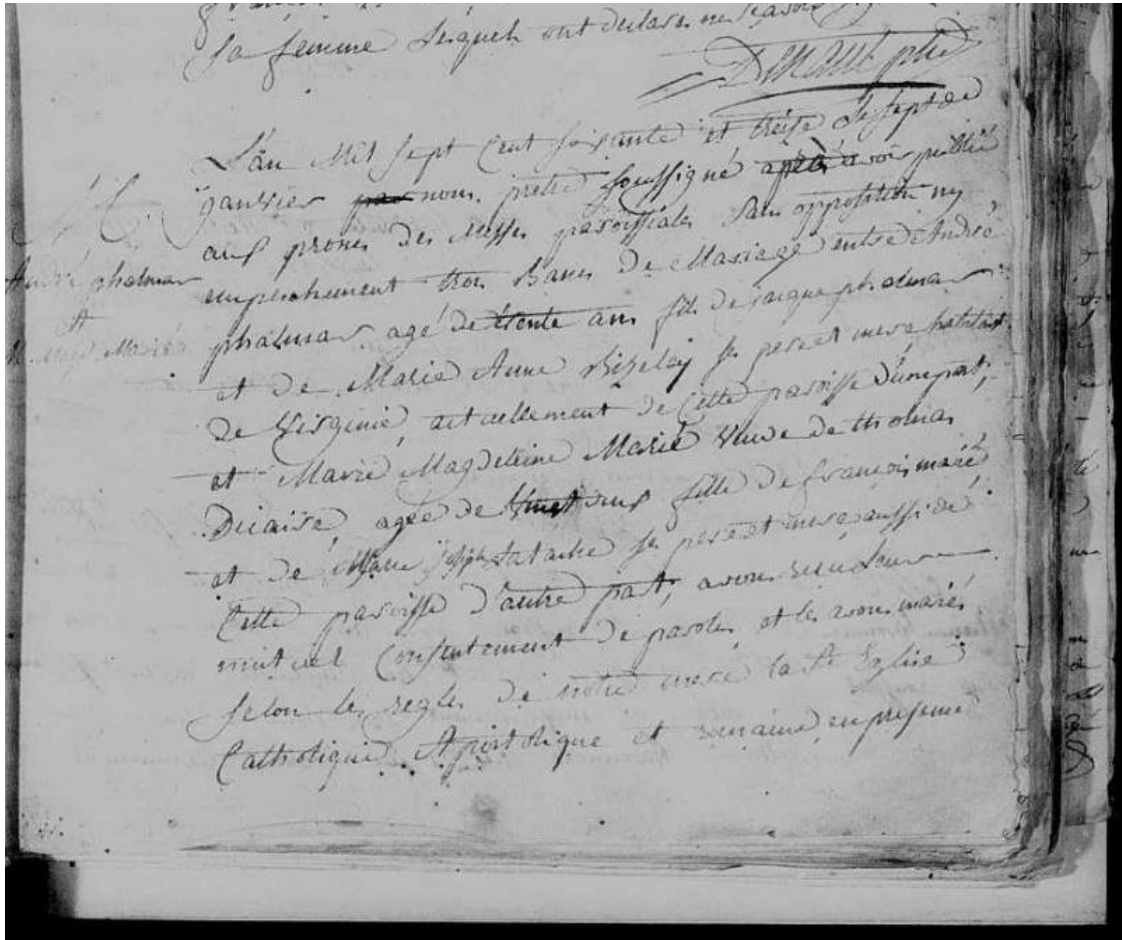 sa femme lesquels ont declare ne scavoir
Denaut ptre
L'an Mil sept Cent soixante et treise le sept de
janvier par nous pretre soussigné après avoir publié
aux prones des Messes paroissiales sans opposition ny
empechement trois Bans de Mariage entre André
phalmar agé de trente ans fils de jacque phalmar
et de Marie Anne ses pere et mere habitant
de Virginie, actuellement de Cette paroisse d'une part,
et Marie Magdeleine Marié Veuve de thomas
Dicaire, agée de vingt ans fille de françois marié
et de Marie joseph ses pere et mere aussi de
Cette paroisse d'autre part, avons recu Leur
mutuel Consentement de paroles et les avons mariés
selon les regles de notre mere la Ste Eglise
Catholique Apostolique et romaine, en presence
André phalmar
et
M. Magd. Marié